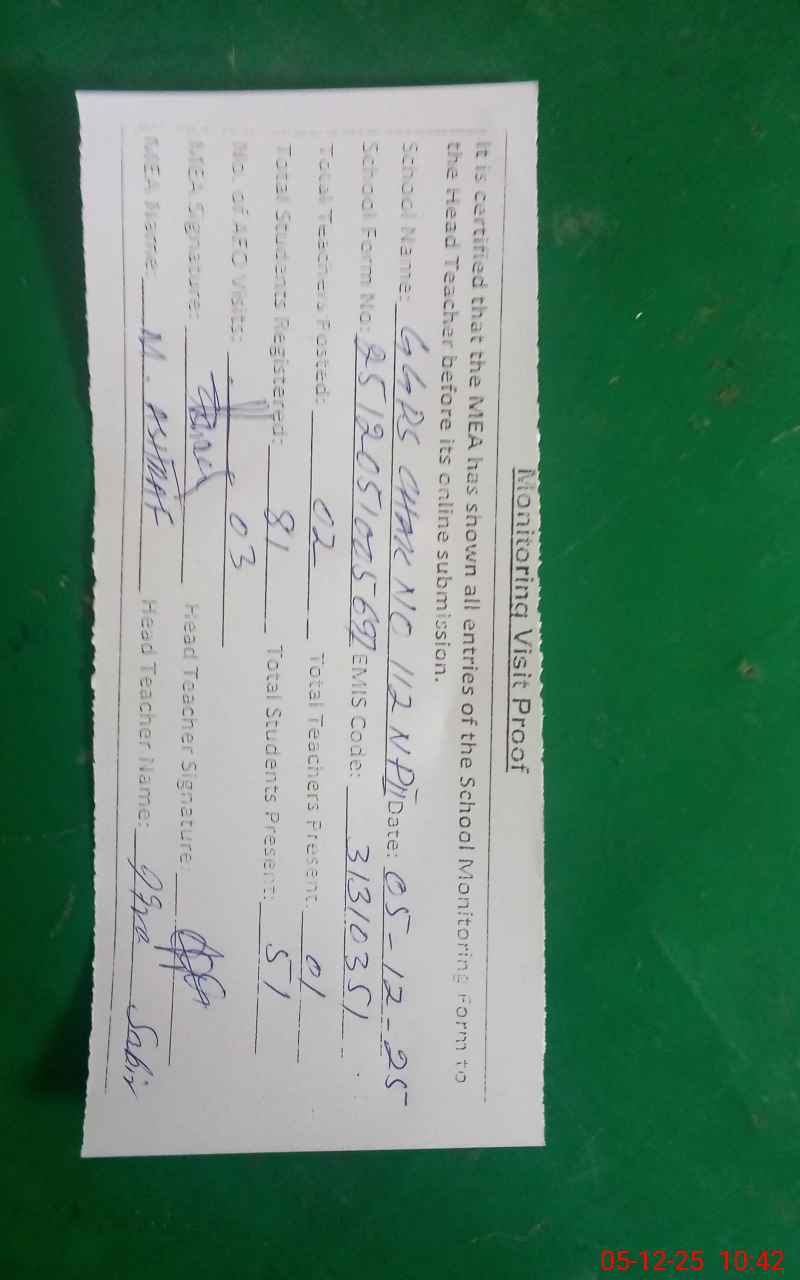 Monitoring Visit Proof
It is certified that the MEA has shown all entries of the School Monitoring Form to
the Head Teacher before its online submission.
School Name: GGPS CHAK NO 112 NP Date: 05-12-25
School Form No: EMIS Code: 31310351
Total Teachers Posted: 02 Total Teachers Present: 01
Total Students Registered: 81 Total Students Present: 51
No. of AEO Visits: 03
MEA Signature: Head Teacher Signature:
MEA Name: M. Head Teacher Name: Sabir
05-12-25 10:42